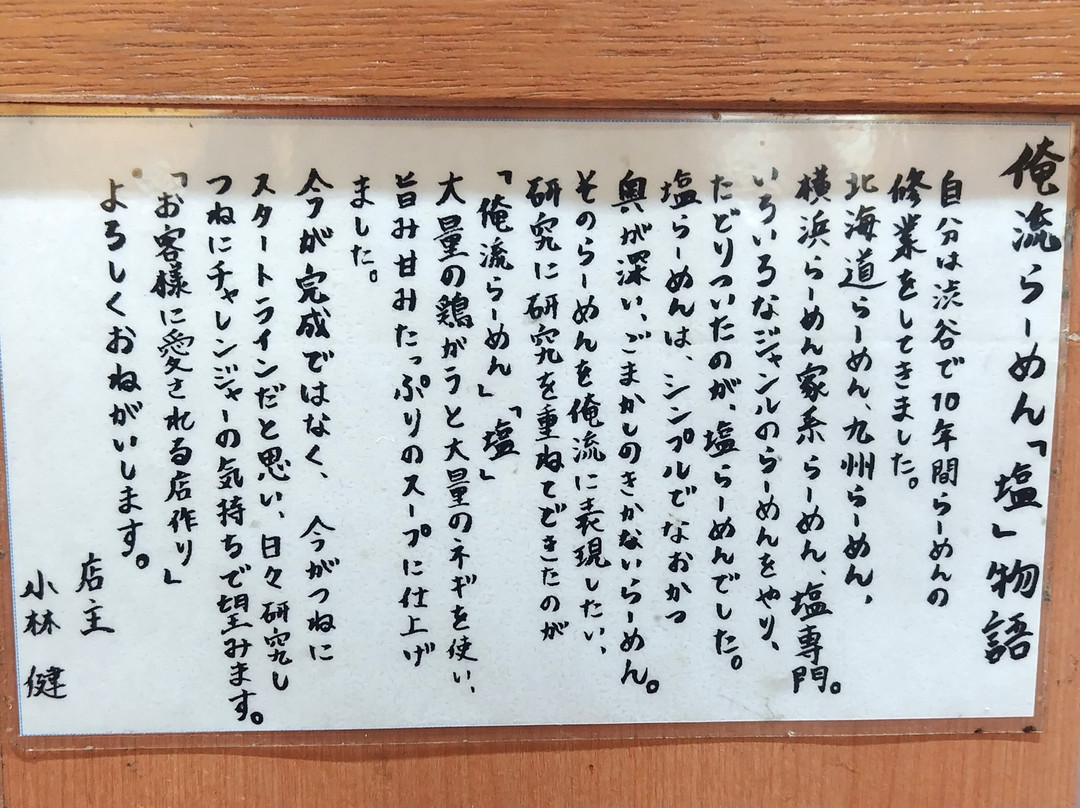 俺流らーめん「塩」物語
自分は渋谷で10年間らーめんの
修業をしてきました。
北海道らーめん、九州らーめん、
横浜らーめん家系らーめん、塩専門。
いろいろなジャンルのらーめんをやり、
たどりついたのが、塩らーめんでした。
塩らーめんは、シンプルでなおかつ
奥が深い、ごまかしのきかないらーめん。
そのらーめんを俺流に表現したい、
研究に研究を重ねてできたのが
「俺流らーめん」「塩」
大量の鶏がらと大量のネギを使い、
旨み甘みたっぷりのスープに仕上げ
ました。
今が完成ではなく、今がつねに
スタートラインだと思い、日々研究し
つねにチャレンジャーの気持ちで望みます。
「お客様に愛される店作り」
よろしくおねがいします。
店主
小林 健